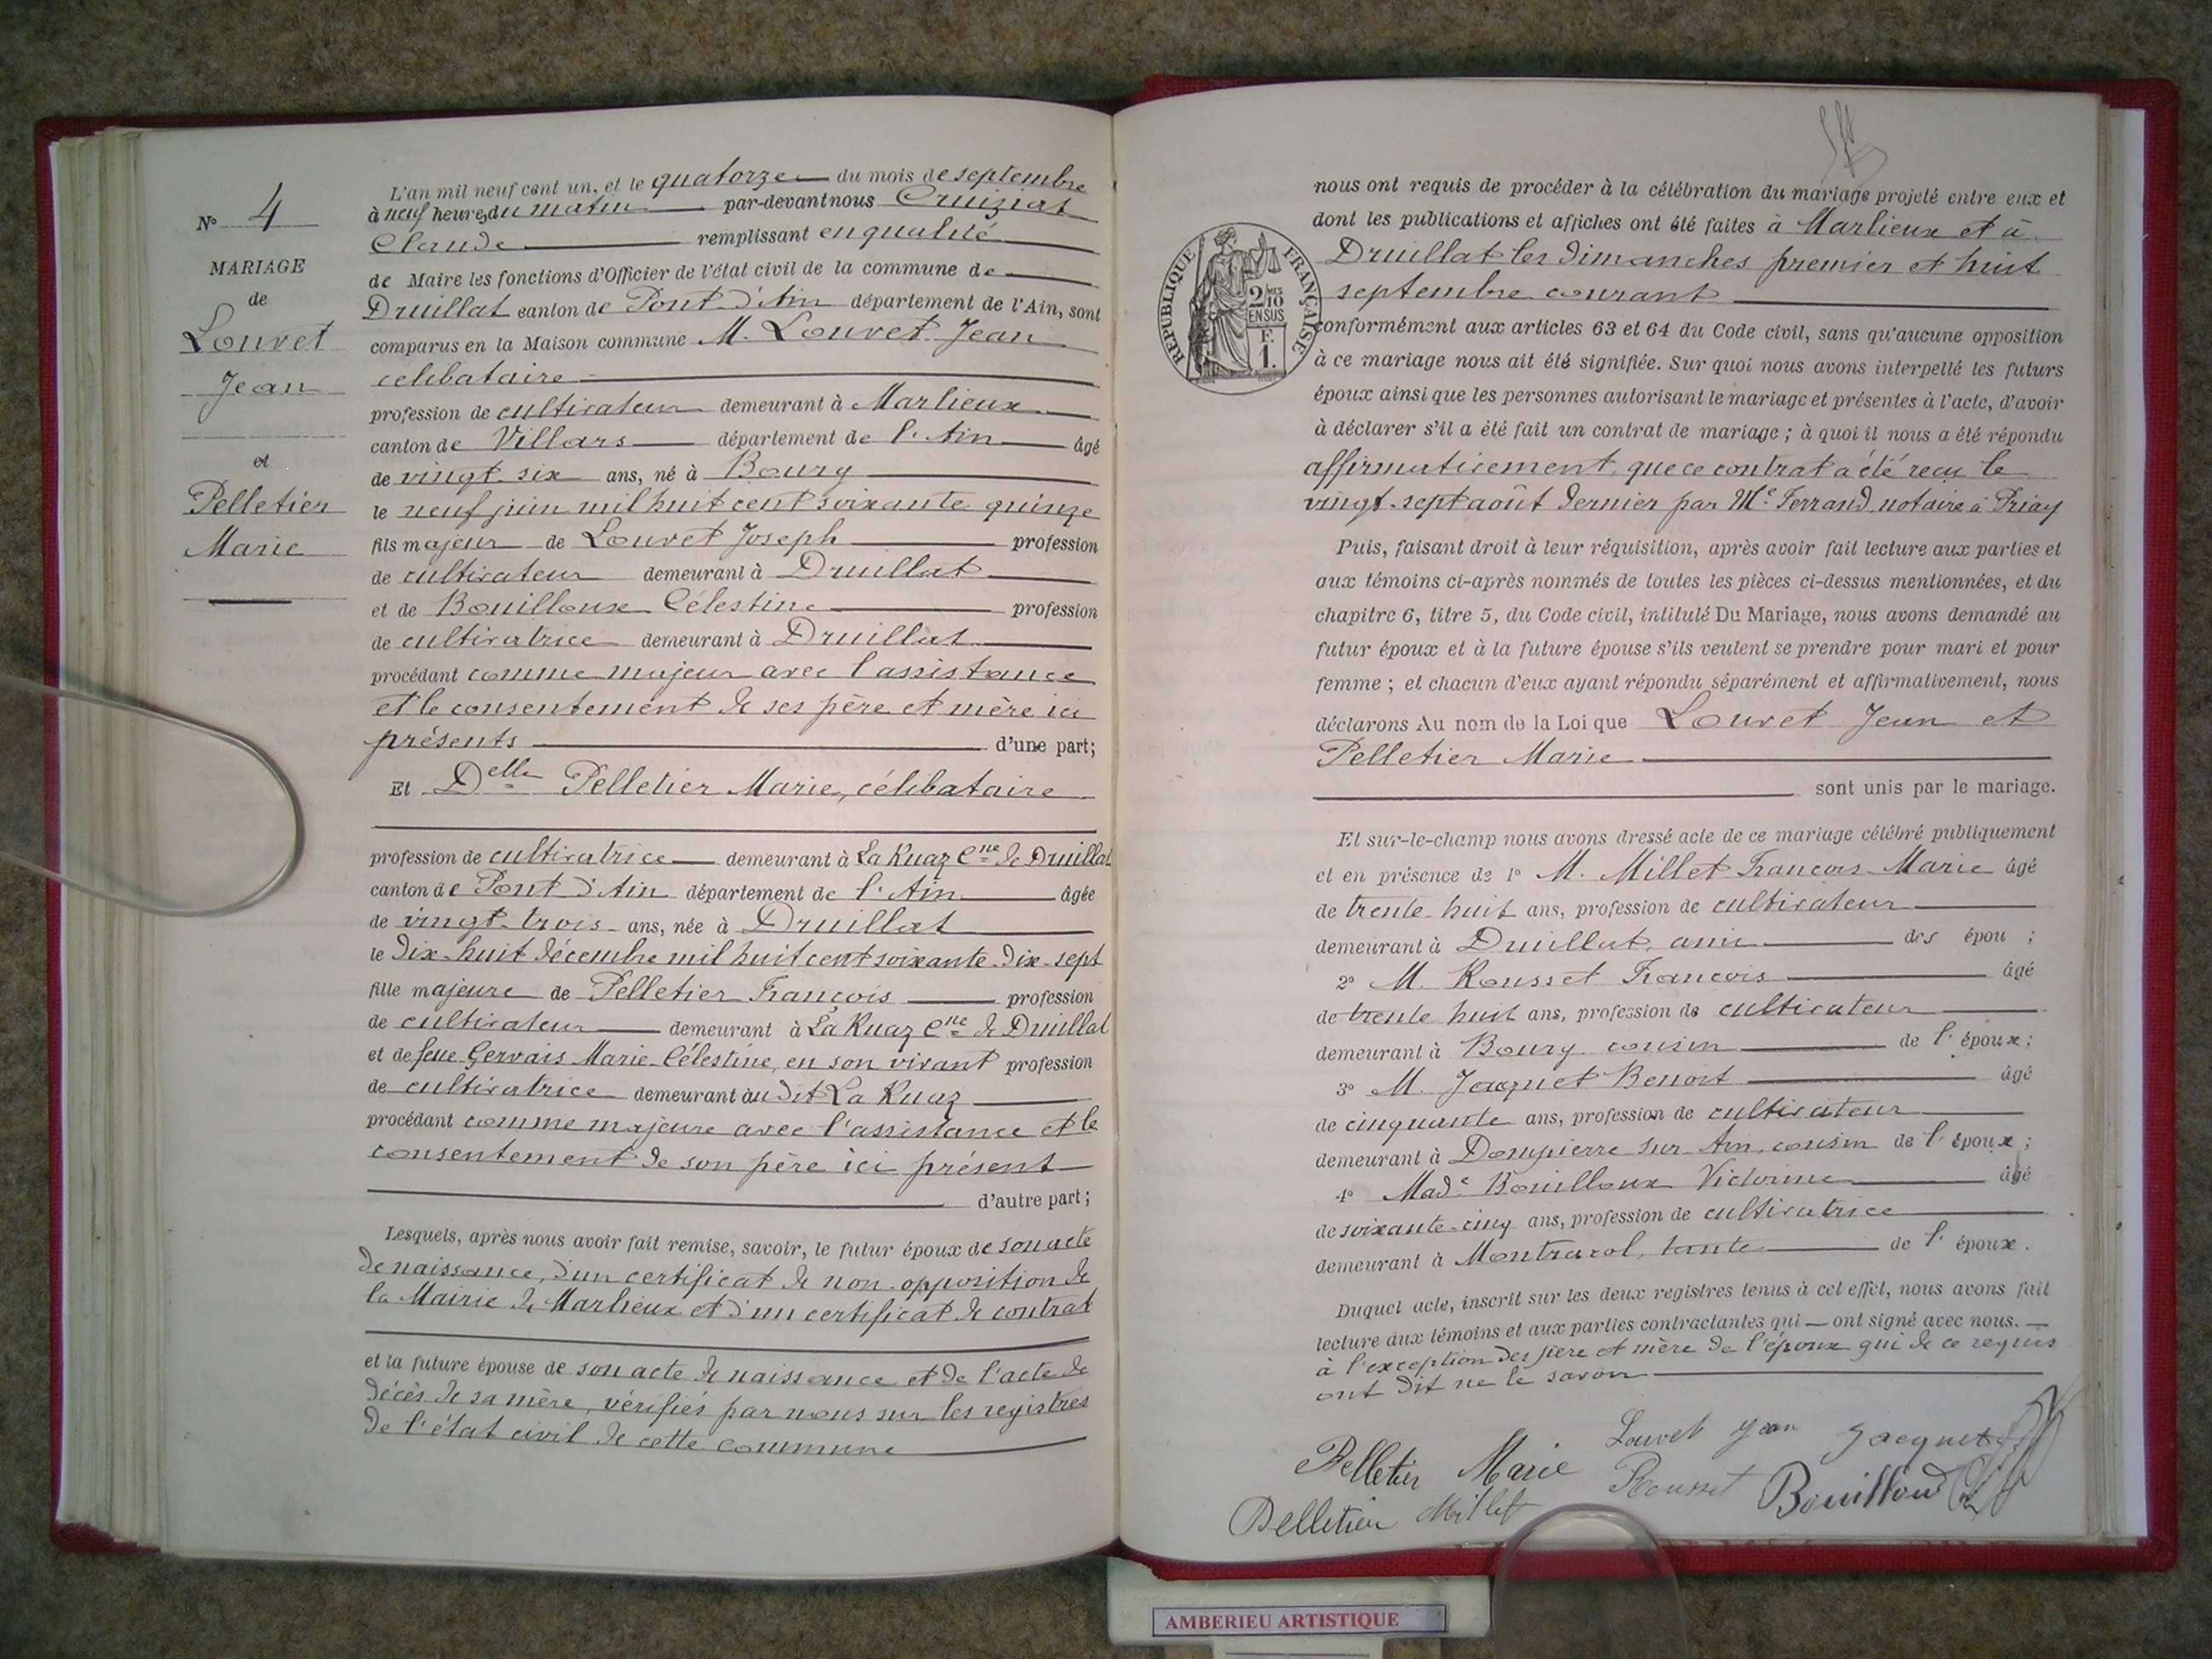 N° 4
MARIAGE
de
Louvet
Jean
et
Pelletier
Marie
L'an mil neuf cent un, et le quatorze du mois de septembre
à neuf heures du matin par-devant nous Cruiziat
Claude remplissant en qualité
de Maire les fonctions d'Officier de l'état civil de la commune de
Druillat canton de Pont d'Ain département de l'Ain, sont
comparus en la Maison commune M. Louvet Jean
célibataire
profession de cultivateur demeurant à Marlieux
canton de Villars département de l'Ain âgé
de vingt-six ans, né à Bourg
le neuf juin mil huit cent soixante quinze
fils majeur de Louvet Joseph profession
de cultivateur demeurant à Druillat
et de Bouilloux Célestine profession
de cultivatrice demeurant à Druillat
procédant comme majeur avec l'assistance
et le consentement de ses père et mère ici
présents d'une part;
Et Delle Pelletier Marie, célibataire
profession de cultivatrice demeurant à La Ruaz Cne de Druillat
canton de Pont d'Ain département de l'Ain âgée
de vingt-trois ans, née à Druillat
le dix-huit décembre mil huit cent soixante-dix-sept
fille majeure de Pelletier François profession
de cultivateur demeurant à La Ruaz Cne de Druillat
et de feue Gervais Marie-Célestine, en son vivant profession
de cultivatrice demeurant audit La Ruaz
procédant comme majeure avec l'assistance et le
consentement de son père ici présent
d'autre part;
Lesquels, après nous avoir fait remise, savoir, le futur époux de son acte
de naissance, d'un certificat de non-opposition de
la Mairie de Marlieux et d'un certificat de contrat
et la future épouse de son acte de naissance et de l'acte de
décès de sa mère, vérifiés par nous sur les registres
de l'état civil de cette commune
nous ont requis de procéder à la célébration du mariage projeté entre eux et
dont les publications et affiches ont été faites à Marlieux et à
Druillat les dimanches premier et huit
septembre courant
RÉPUBLIQUE FRANÇAISE
2/10
EN SUS
F.
1.
conformément aux articles 63 et 64 du Code civil, sans qu'aucune opposition
à ce mariage nous ait été signifiée. Sur quoi nous avons interpellé les futurs
époux ainsi que les personnes autorisant le mariage et présentes à l'acte, d'avoir
à déclarer s'il a été fait un contrat de mariage; à quoi il nous a été répondu
affirmativement, que ce contrat a été reçu le
vingt-sept août dernier par Me Ferrand, notaire à Priay
Puis, faisant droit à leur réquisition, après avoir fait lecture aux parties et
aux témoins ci-après nommés de toutes les pièces ci-dessus mentionnées, et du
chapitre 6, titre 5, du Code civil, intitulé Du Mariage, nous avons demandé au
futur époux et à la future épouse s'ils veulent se prendre pour mari et pour
femme; et chacun d'eux ayant répondu séparément et affirmativement, nous
déclarons Au nom de la Loi que Louvet Jean et
Pelletier Marie
sont unis par le mariage.
Et sur-le-champ nous avons dressé acte de ce mariage célébré publiquement
et en présence de 1° M. Millet François-Marie âgé
de trente-huit ans, profession de cultivateur
demeurant à Druillat, ami des épou ;
2° M. Rousset François âgé
de trente huit ans, profession de cultivateur
demeurant à Bourg, cousin de l'époux;
3° M. Jacquet Benoit âgé
de cinquante ans, profession de cultivateur
demeurant à Dompierre sur Ain, cousin de l'époux;
4° Made Bouilloux Victorine âgé
de soixante-cinq ans, profession de cultivatrice
demeurant à Montracol, tante de l'époux.
Duquel acte, inscrit sur les deux registres tenus à cet effet, nous avons fait
lecture aux témoins et aux parties contractantes qui — ont signé avec nous. —
à l'exception des père et mère de l'époux qui de ce requis
ont dit ne le savoir
Louvet Jean Jacquet
Pelletier Marie Rousset Bouilloud
Pelletier Millet
AMBERIEU ARTISTIQUE